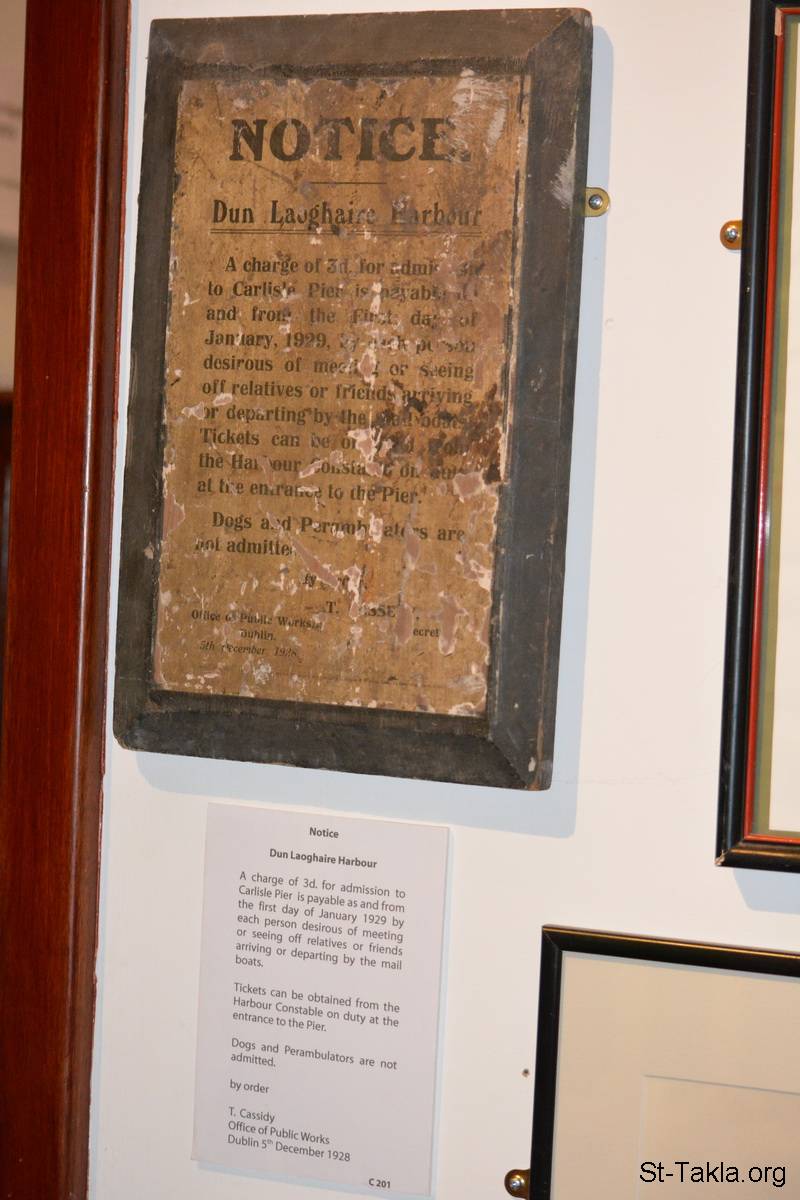 NOTICE.
Dun Laoghaire Harbour
A charge of 3d. for
to Carlisle Pier is payable
and from the First day of
January, 1929, by each person
desirous of or seeing
off relatives or friends arriving
or departing by the mail boats.
Tickets can be
the Harbour on
at the entrance to the Pier.
Dogs and Perambulators are
not admitted
T.
Office of Public Works,
Dublin.
5th December, 1928.
Notice
Dun Laoghaire Harbour
A charge of 3d. for admission to
Carlisle Pier is payable as and from
the first day of January 1929 by
each person desirous of meeting
or seeing off relatives or friends
arriving or departing by the mail
boats.
Tickets can be obtained from the
Harbour Constable on duty at the
entrance to the Pier.
Dogs and Perambulators are not
admitted.
by order
T. Cassidy
Office of Public Works
Dublin 5th December 1928
C 201
St-Takla.org